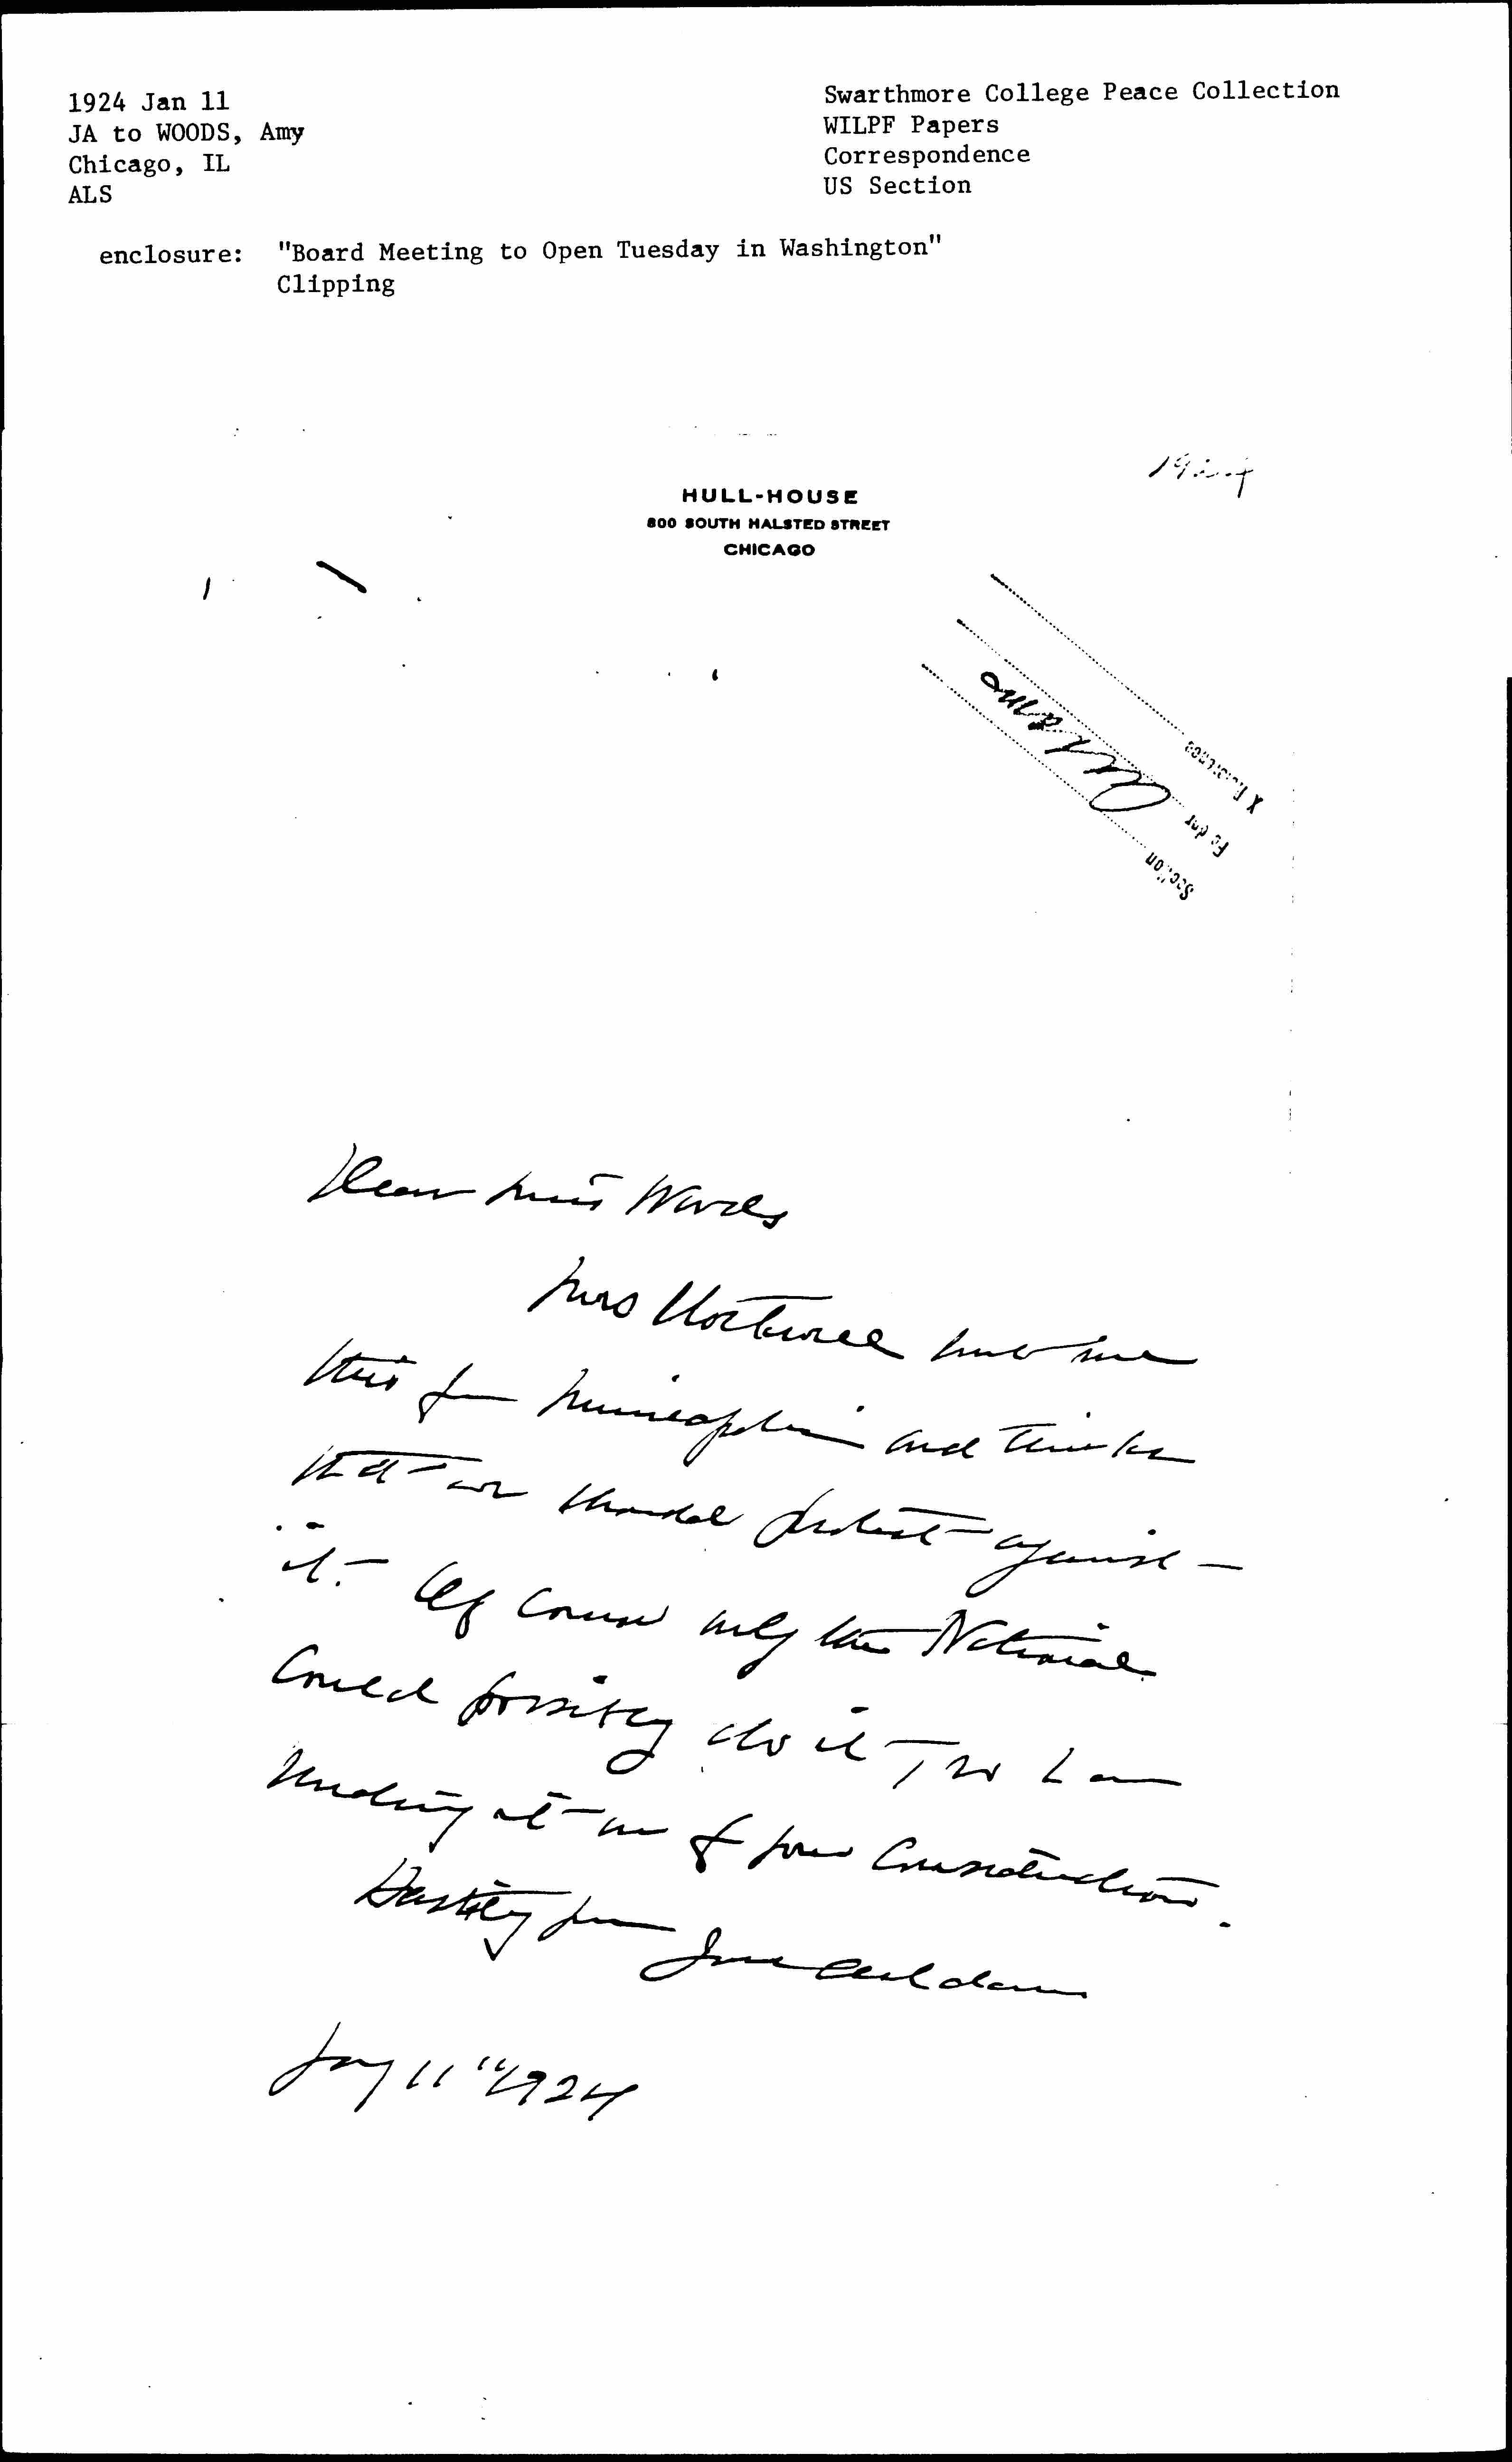 1924 Jan 11
JA to WOODS, Amy
Chicago, IL
ALS
Swarthmore College Peace Collection
WILPF Papers
Correspondence
US Section
enclosure: "Board Meeting to Open Tuesday in Washington"
Clipping
1924
HULL-HOUSE
800 SOUTH HALSTED STREET
CHICAGO
X Reference
Folder Addams
Section
Dear Miss Woods
Mrs me
this from Minneapolis and thinks
that we should protest against
it. Of course only the National
could possibly do it so I am
sending it on for your consideration.
Hastily yours
Jane Addams
Jany 11" 1924